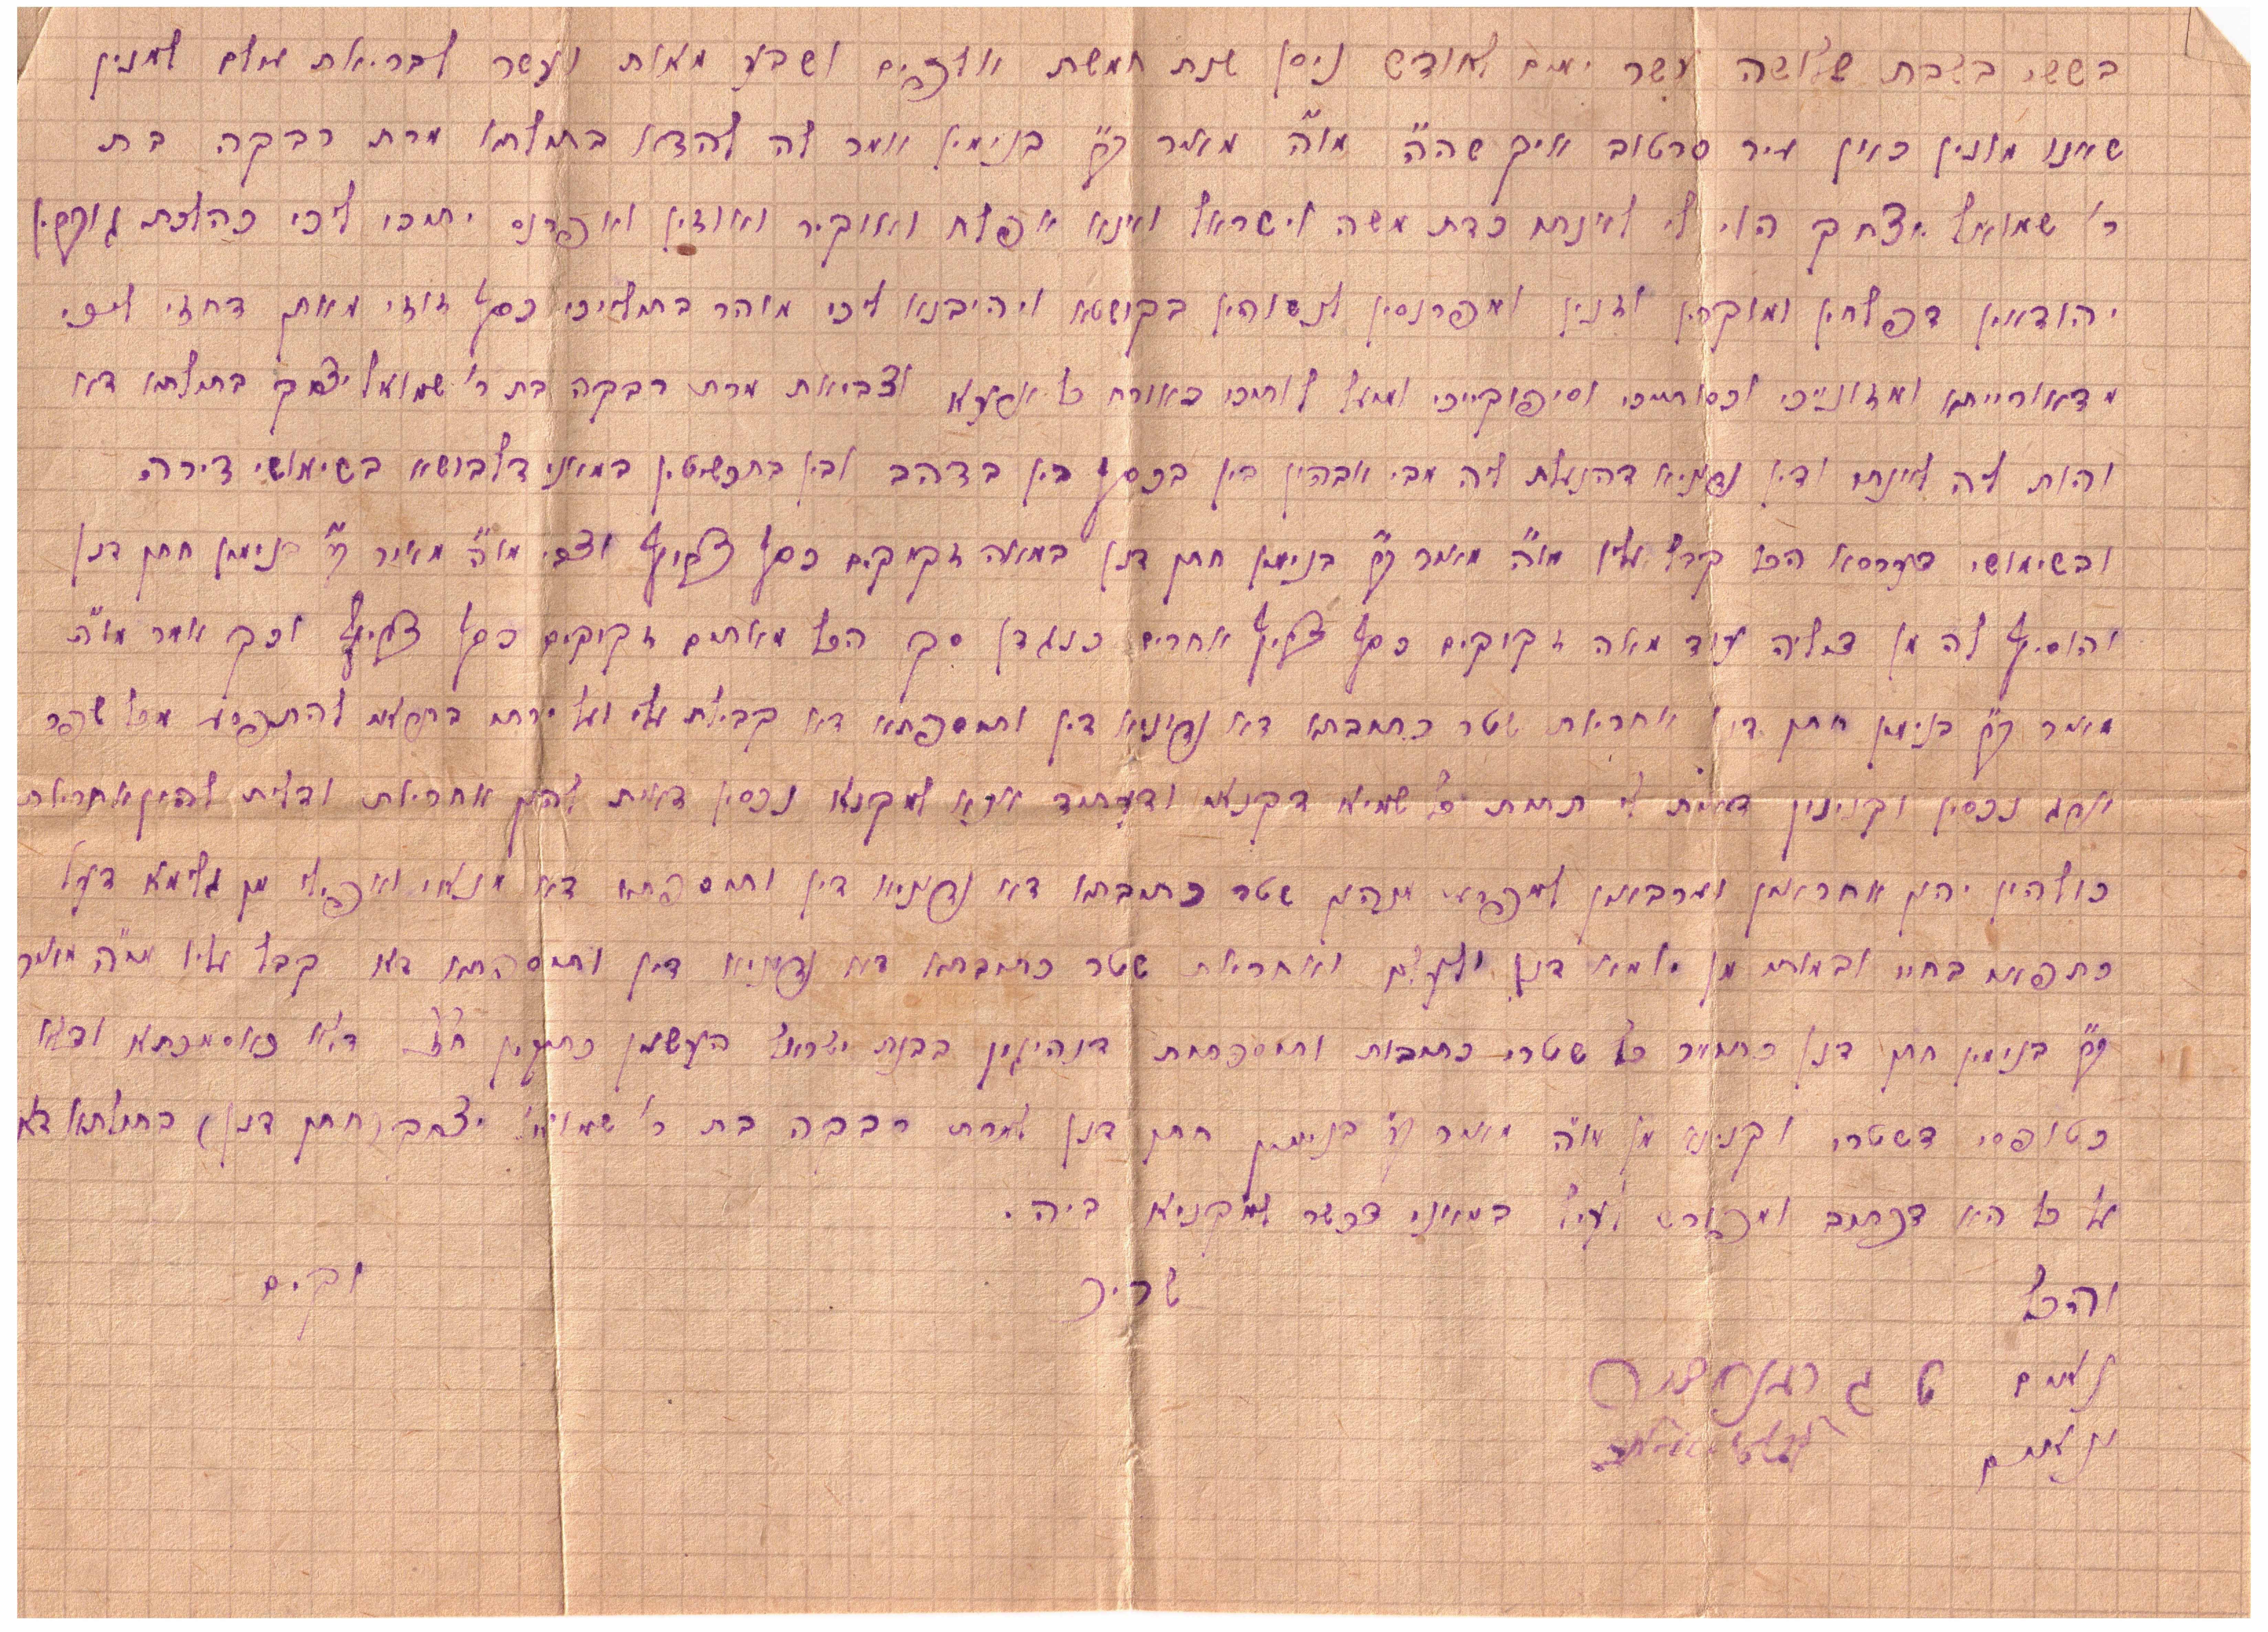 בששי בשבת שלושה עשר ימים לחודש ניסן שנת חמשת אלפים ושבע מאות ועשר לבריאת עולם למנין
שאנו מונין כאן עיר סרטוב איך שהח" מו"ה מאיר ב"ר בנימין אמר לה להדא בתולתא מרת רבקה בת
ר' שמואל יצחק הוי לי לאינתו כדת משה וישראל ואנא אפלח ואוקיר ואוזין ואפרנס יתיכי ליכי כהלכת גוברין
יהודאין דפלחין ומוקרין וזנין ומפרנסין לנשיהון בקושטא ויהיבנא ליכי מוהר בתוליכי כסף זוזי מאתן דחזי ליכי
מדאורייתא ומזונייכי וכסותיכי וסיפוקייכי ומיעל לותיכי כאורח כל ארעא וצביאת מרת רבקה בת ר' שמואל יצחק בתולתא דא
והות ליה לאינתו ודין נדוניא דהנעלת ליה מבי אבוהין בין בכסף בין בדהב ובין בתכשיטין במאני דלבושא בשימושי דירה
ובשימושי דערסא הכל קיבל עליו מו"ה מאיר ב"ר בנימין חתן דנן במאה זקוקים כסף צרוף וצבי מו"ה מאיר ב"ר בנימין חתן דנן
והוסיף לה מן דיליה עוד מאה זקוקים כסף צרוף אחרים כנגדן סך הכל מאתים זקוקים כסף צרוף וכך אמר מו"ה
מאיר ב"ר בנימין חתן דנן אחריות שטר כתובתא דא נדוניא דין ותוספתא דא קבלית עלי ועל ירתי בתראי להתפרע מכל שפר
ארג נכסין וקנינין דאית לי תחות כל שמיא דקנאי ודעתיד אנא למקנא נכסין דאית להון אחריות ודלית להון אחריות
כולהון יהון אחראין וערבאין למפרע מנהון שטר כתובתא דא נדוניא דין ותוספתא דא מנאי ואפילו מן גלימא דעל
כתפאי בחיי ובמותי מן יומא דנן ולעלם ואחריות שטר כתובתא דא נדוניא דין ותוספתא דא קבל עליו מו"ה מאיר
ב"ר בנימין חתן דנן כחומר כל שטרי כתובות ותוספתות דנהיגין בבנות ישראל העשוין כתיקון חז"ל דלא כאסמכתא ודלא
כטופסי דשטרי וקנינא מן מו"ה מאיר ב"ר בנימין חתן דנן למרת רבקה בת ר' שמואל יצחק (חתן דנן) בתולתא דא
על כל הא דכתוב ומפורש לעיל במאני דכשר למקניא ביה.
והכל שריר וקים
נאום
ונאום